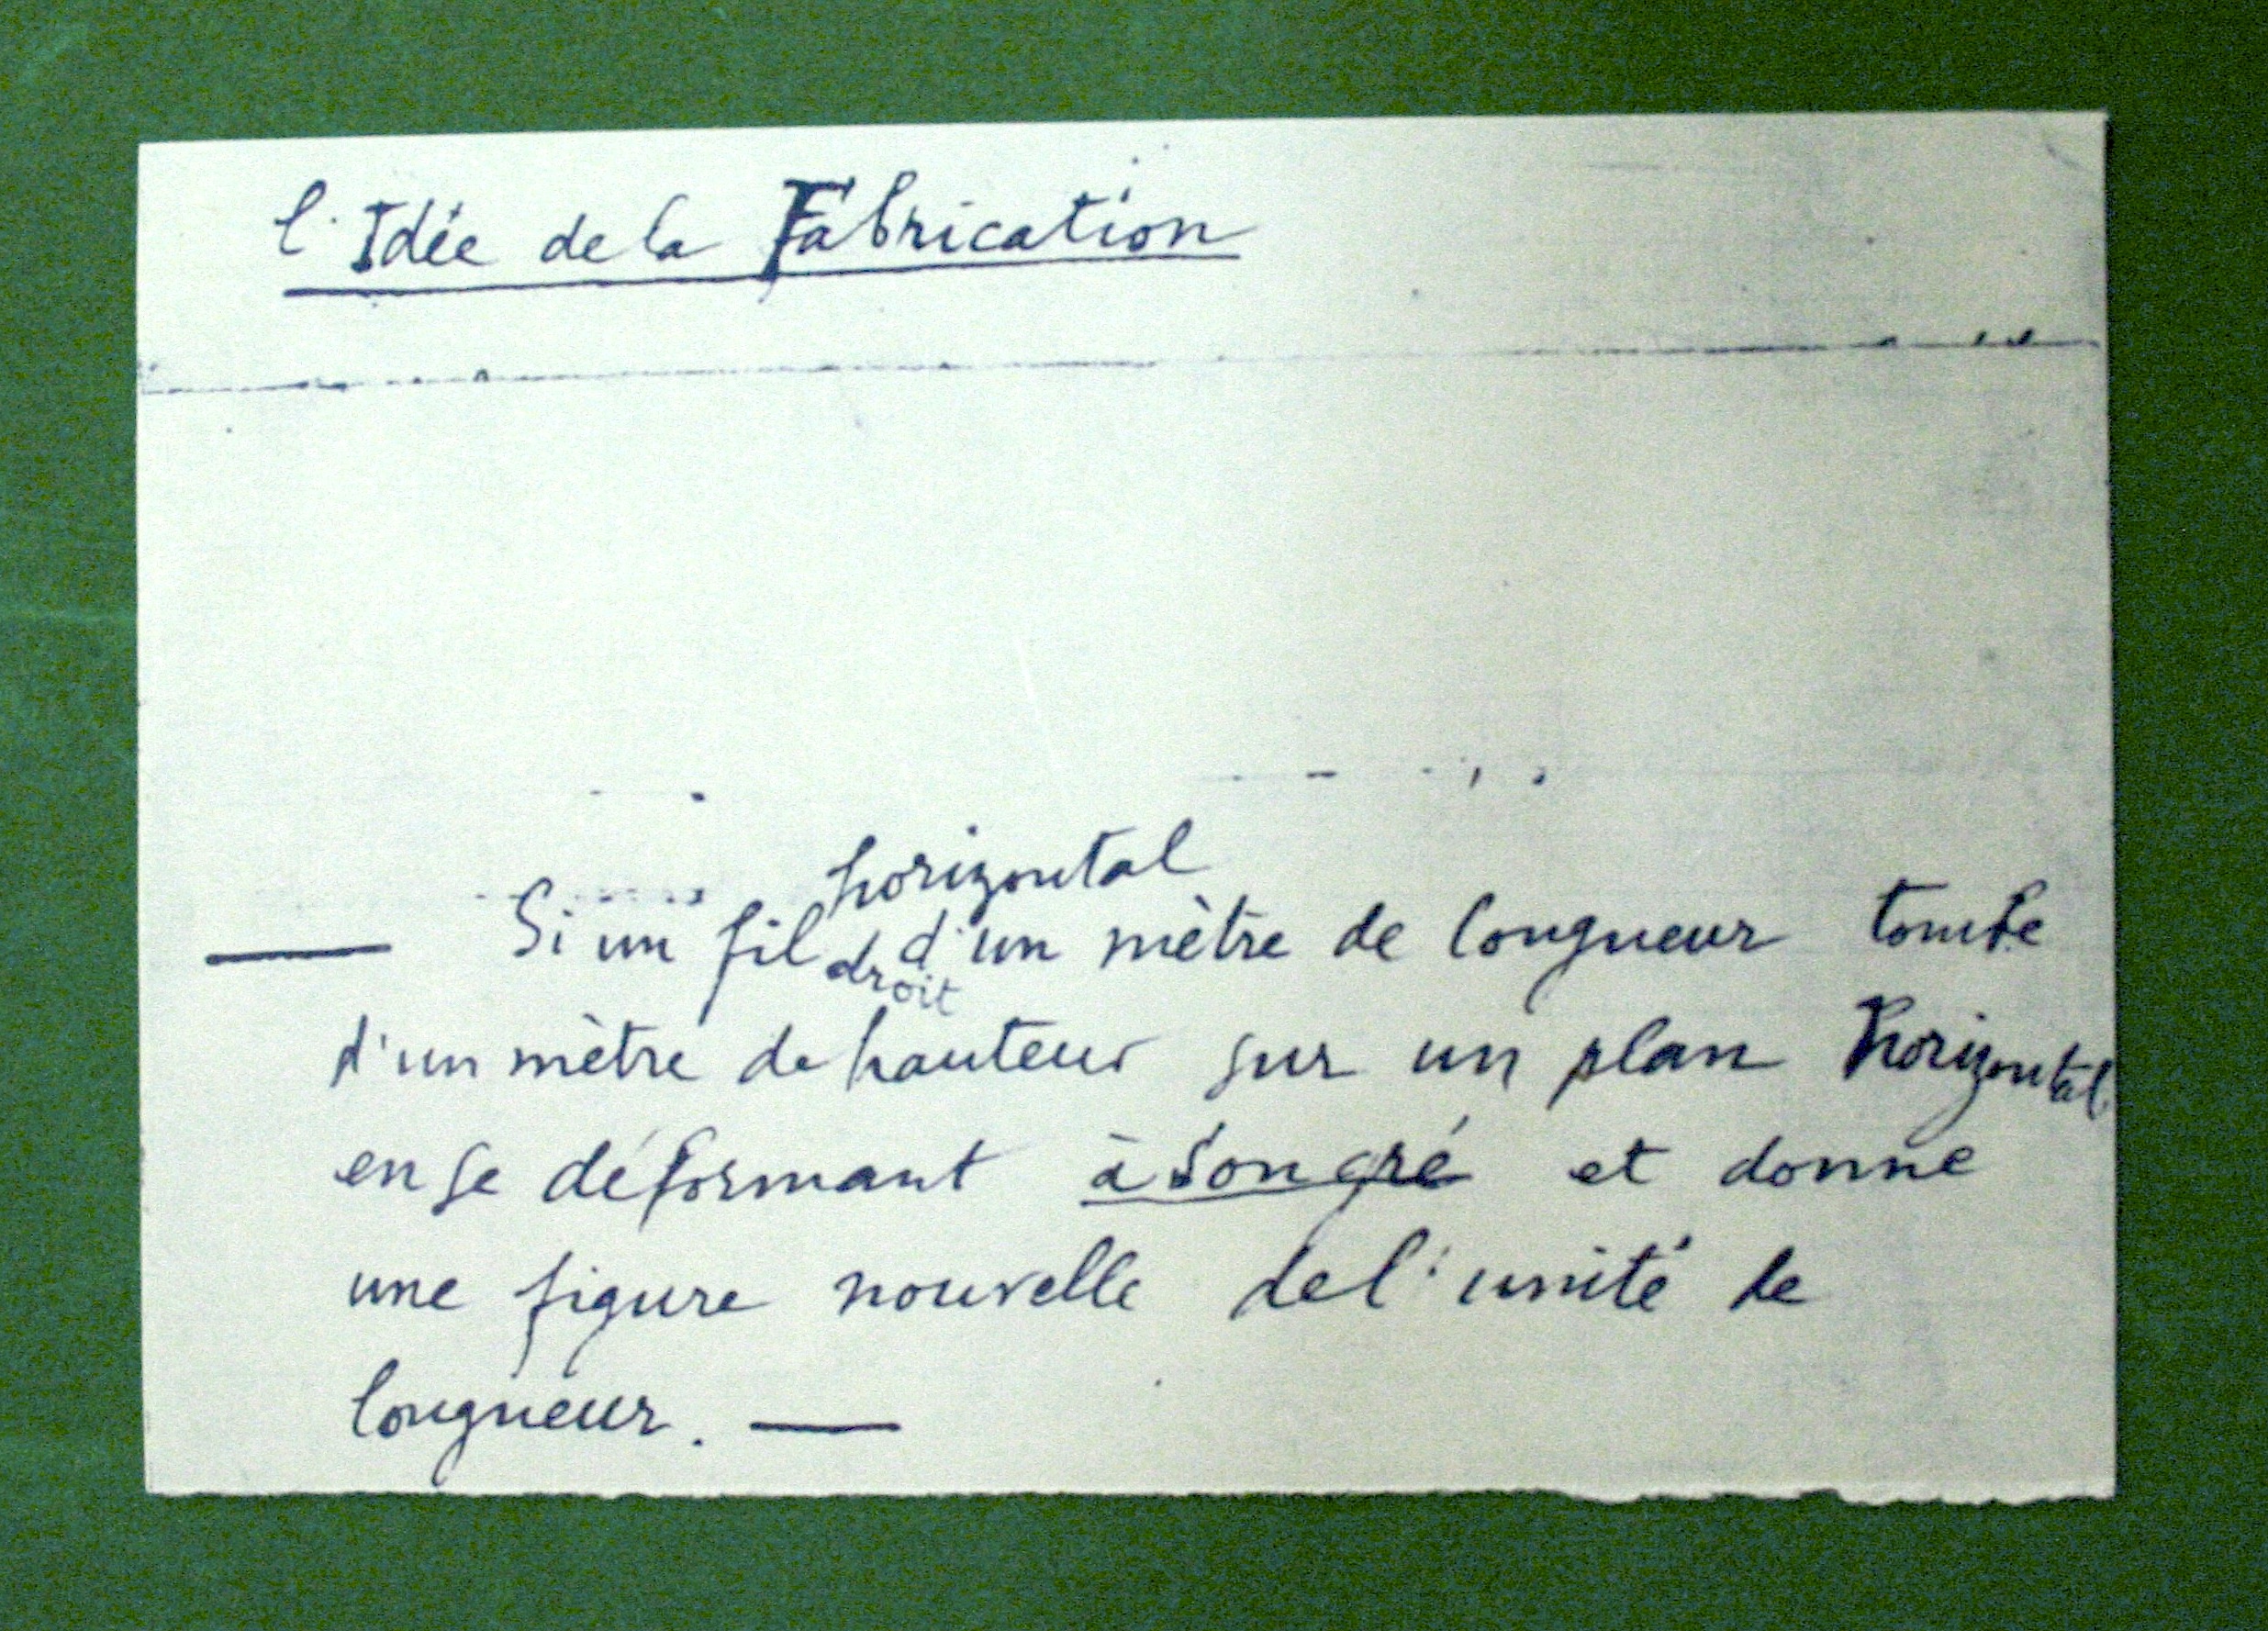 l'Idée de la Fabrication
horizontal
— Si un fil droit d'un mètre de longueur tombe
d'un mètre de hauteur sur un plan horizontal
en se déformant à son gré et donne
une figure nouvelle de l'unité de
longueur. —